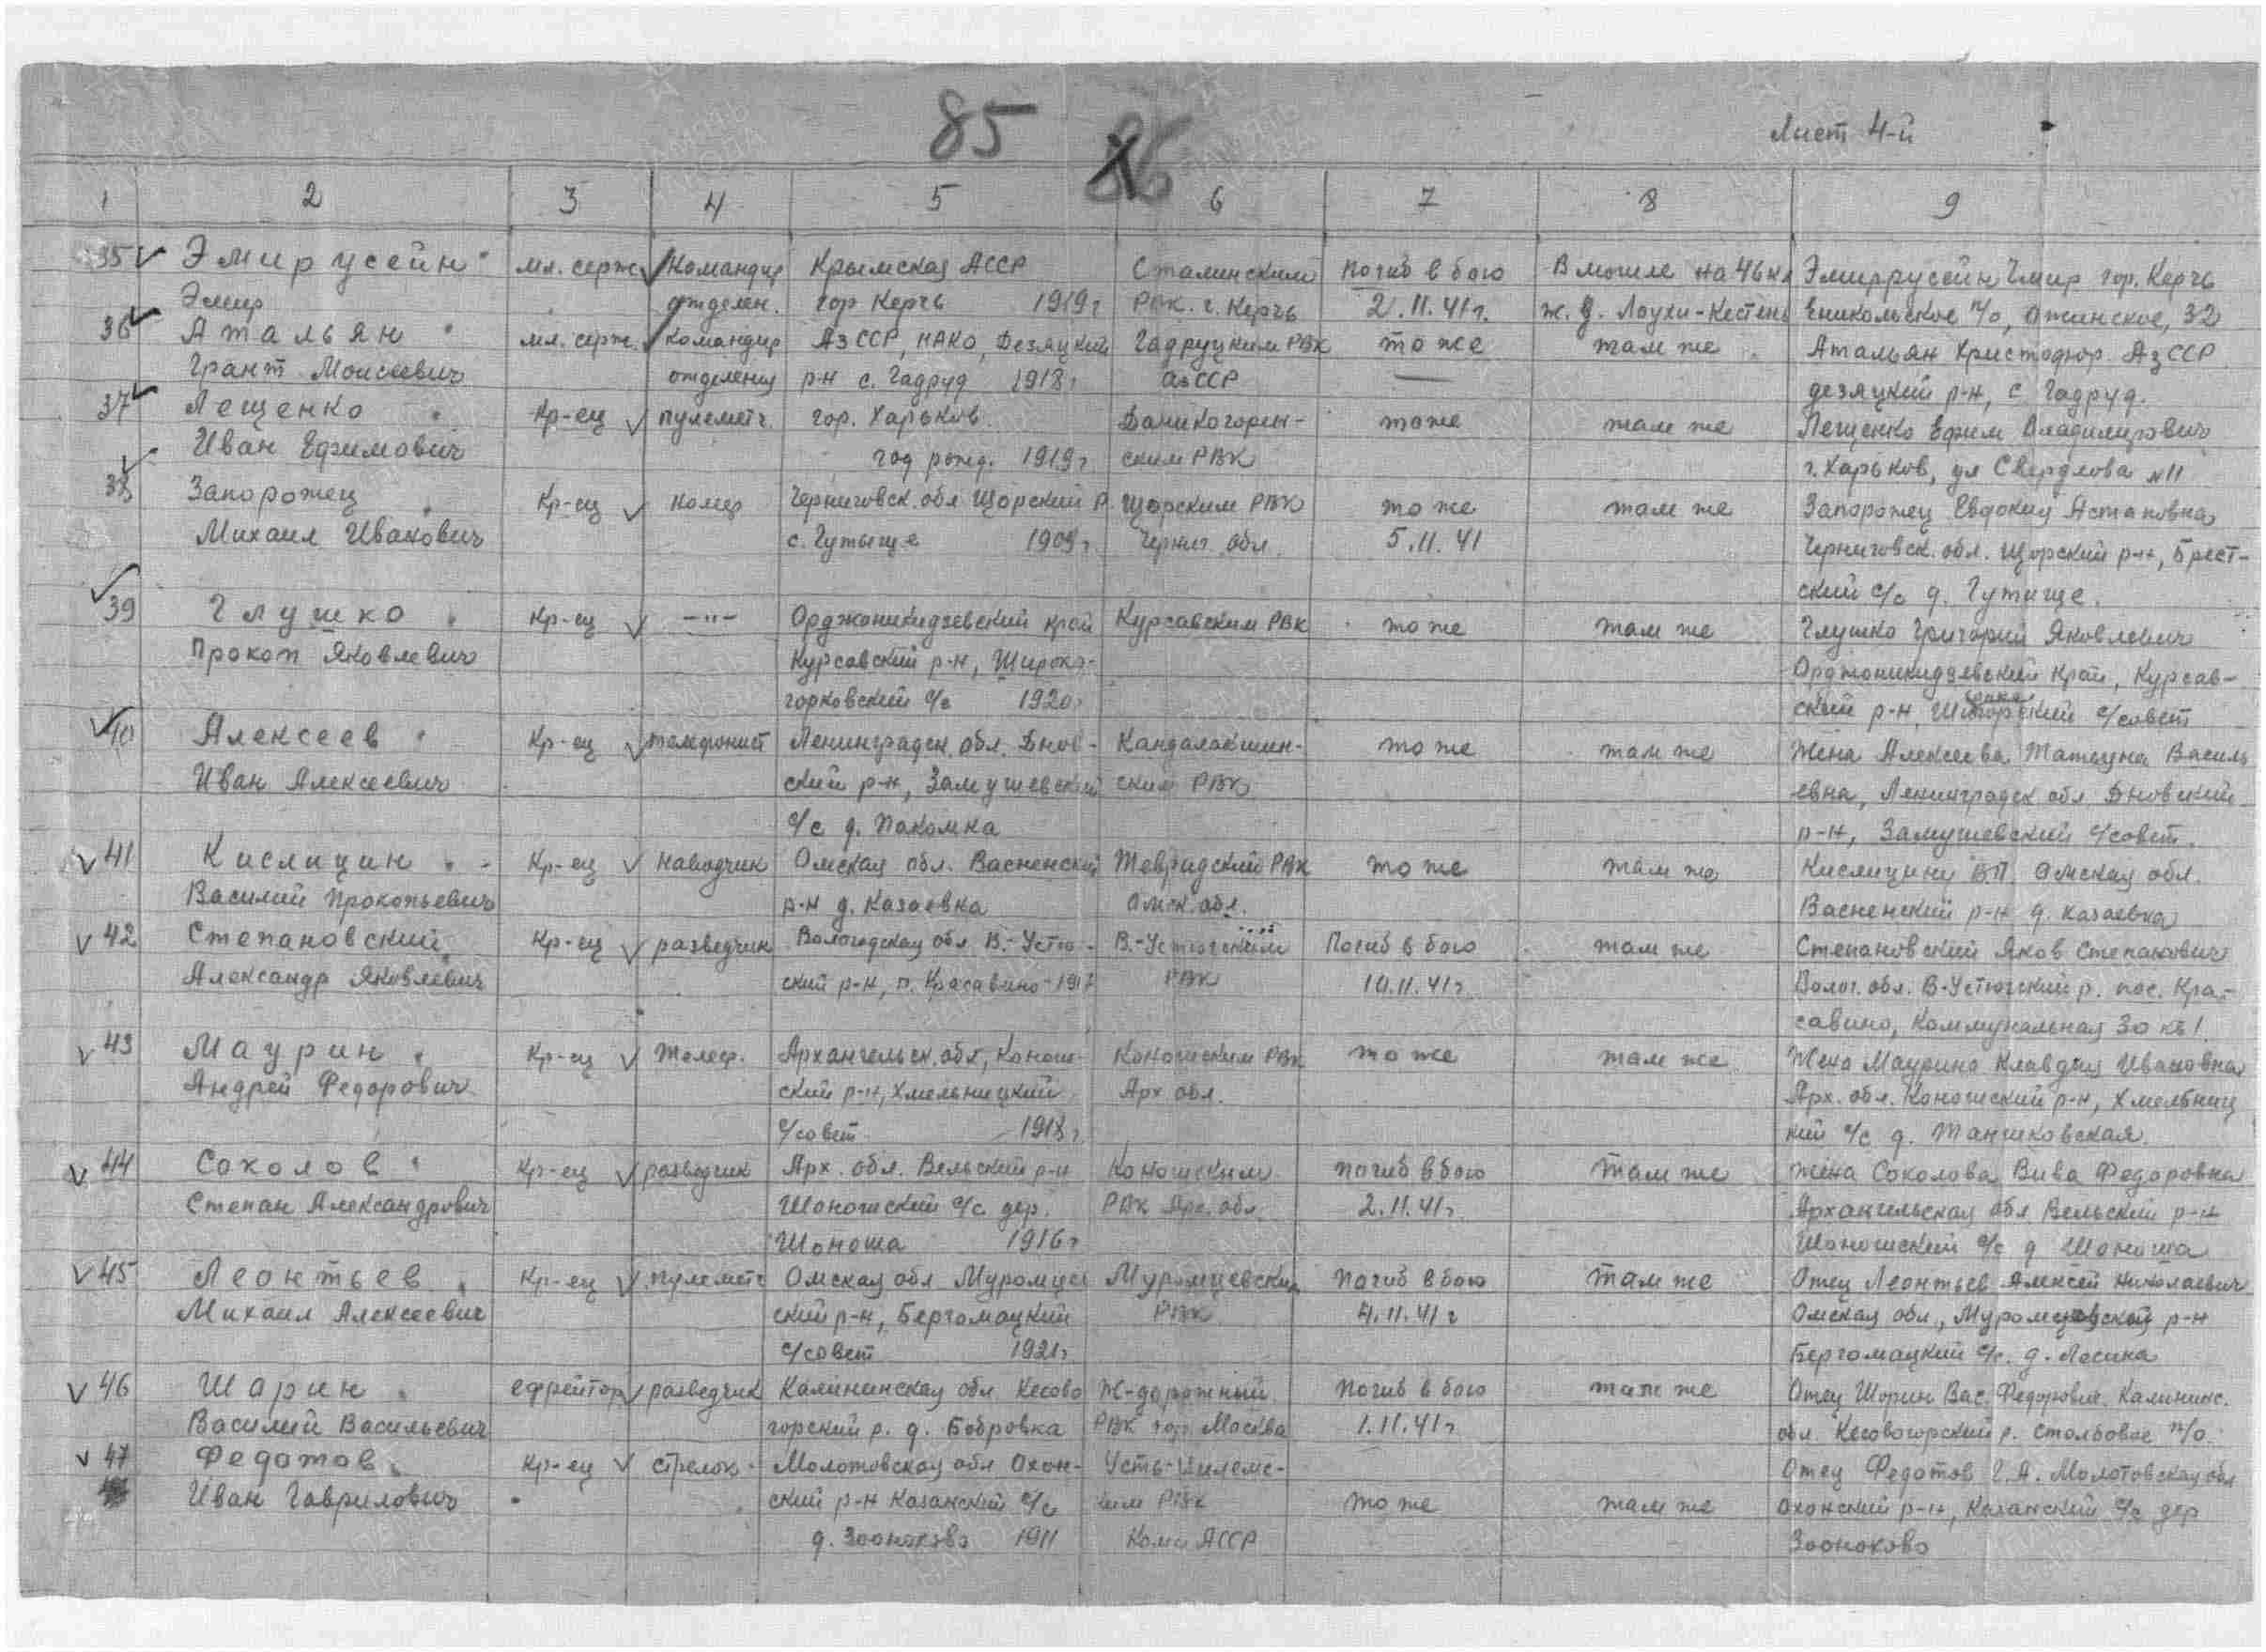 85
Лист 4-й
1 2 3 4 5 6 7 8 9
35 Эмирусейн мл. серж. Командир Крымская АССР Сталинским погиб в бою В могиле на 46 км Эмиррусейн Эмир гор. Керчь
Эмир отделен. гор Керчь 1919г РВК. г. Керчь 2.11.41г. ж.д. Лоухи-Кестень Еникольское п/о, 32
36 Атальян мл. серж. Командир АзССР, НАКО, Дезяцкий Гадруцким РВК то же там же Атальян Христофор АзССР
Грант Моисеевич отделения р-н с. Гадруд 1918г АзССР дезяцкий р-н, с Гадруд.
37 Лещенко Кр-ец пулеметч. гор. Харьков то же там же Лещенко Ефим Владимирович
Иван Ефимович год рожд. 1919г ским РВК г. Харьков, ул Свердлова №11
38 Запорожец Кр-ец номер Черниговск. обл Щорский р. Щорским РВК то же там же Запорожец Евдокия Астаповна
Михаил Иванович с. Гутыще 1909г. Черниг. обл. 5.11.41 Черниговск. обл. Щорский р-н, Брест-
ский с/с д. Гутище.
39 Глушко Кр-ец —"— Орджоникидзевский край Курсавским РВК то же там же Глушко Григорий Яковлевич
Прокоп Яковлевич Курсавский р-н, Широко- Орджоникидзевский край, Курсав-
горковский с/с 1920г ский р-н, с/совет
40 Алексеев Кр-ец телефонист Ленинградск. обл. Днов- Кандалакшин- то же там же Жена Алексеева Татьяна Василь
Иван Алексеевич ский р-н, Замушевский ским РВК евна, Ленинградск обл Дновский
с/с д. Пакомка р-н, Замушевский с/совет.
41 Кислицин Кр-ец наводчик Омская обл. Васненский Тевридский РВК то же там же Кислицину В.П. Омская обл.
Василий Прокопьевич р-н д. Казаевка Омск. обл. Васненский р-н д. Казаевка
42 Степановский Кр-ец разведчик Вологодская обл В.-Устю- В.-Устюгским Погиб в бою там же Степановский Яков Степанович
Александр Яковлевич ский р-н, п. Красавино-1917 РВК 10.11.41г. Волог. обл. В-Устюгский р. пос. Кра-
савино, Коммунальная 30 кв 1.
43 Маурин Кр-ец Телеф. Архангельск. обл, Конош- Коношским РВК то же там же Жена Маурина Клавдия Ивановна
Андрей Федорович ский р-н, Хмельницкий Арх обл. Арх. обл. Коношский р-н, Хмельниц
с/совет 1918г кий с/с д. Танчиковская.
44 Соколов Кр-ец разведчик Арх. обл. Вельский р-н Коношским погиб в бою там же Жена Соколова Вива Федоровна
Степан Александрович Шоношский с/с дер. РВК Арх. обл. 2.11.41г. Архангельская обл Вельский р-н
Шоноша 1916г Шоношский с/с д Шоноша
45 Леонтьев Кр-ец пулеметч Омская обл Муромцев Муромцевским погиб в бою там же Отец Леонтьев Алексей Николаевич
Михаил Алексеевич ский р-н, Бергамацкий РВК 4.11.41г Омская обл, Муромцевский р-н
с/совет 1921г. Бергамацкий с/с. д. Лосина
46 Шарин ефрейтор разведчик Калининская обл Кесово Ж-дорожный погиб в бою там же Отец Шорин Вас. Федорович. Калининс.
Василий Васильевич горский р. д. Бобровка РВК гор. Москва 1.11.41г обл. Кесовогорский р. Столбовое п/о.
47 Федотов Кр-ец стрелок Молотовская обл Охон- Усть-Цилемс- Отец Федотов Г.А. Молотовская обл
Иван Гаврилович ский р-н Казанский с/с ким РВК то же там же Охонский р-н, Казанский с/с дер
д. Зооноково 1911 Коми АССР Зооноково